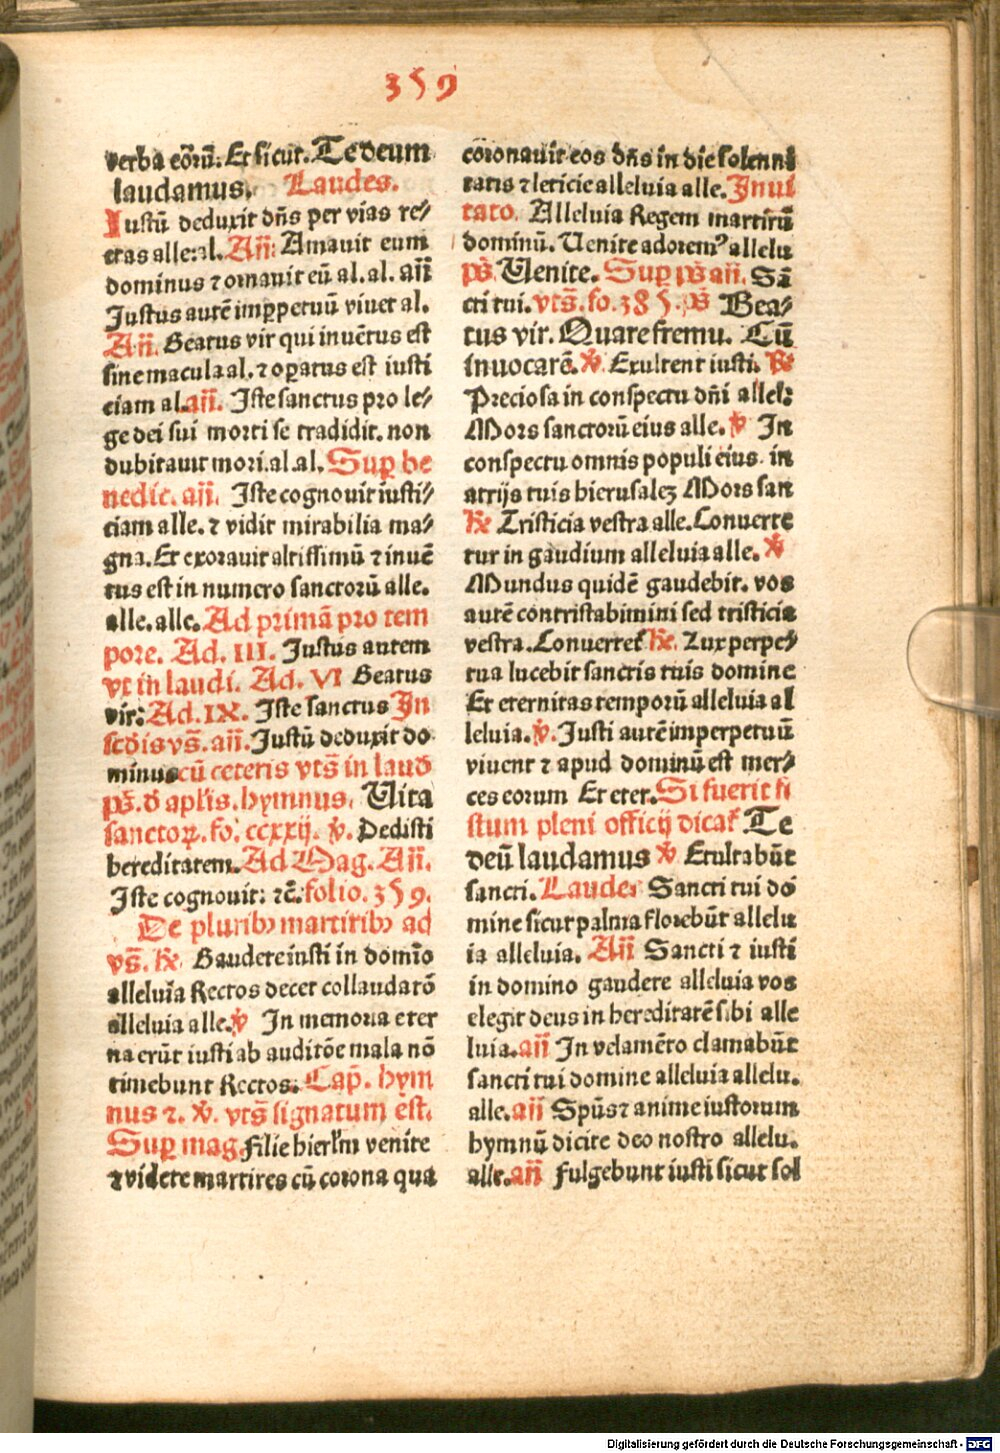 359
verba eōrū. Et sicut. Te deum
laudamus. Laudes.
Iustū deduxit dn̄s per vias re⸗
ctas alle: al. An̄: Amauit eum
dominus ⁊ ornauit eū al. al. an̄
Justus autē imꝑpetuū viuet al.
An̄. Beatus vir qui inuētus est
sine macula al. ⁊ oꝑatus est iusti
ciam al. an̄. Iste sanctus pro le⸗
ge dei sui morti se tradidit. non
dubitauit mori. al. al. Suꝑ be
nedic. an̄. Iste cognouit iusti⸗
ciam alle. ⁊ vidit mirabilia ma⸗
gna. Et exorauit altissimū ⁊ inuē
tus est in numero sanctorū alle.
alle. alle. Ad primā pro tem
pore. Ad. III. Justus autem
vt in laudi. Ad. VI Beatus
vir: Ad. IX. Iste sanctus In
scd̄is vs̄. an̄. Justū deduxit do
minus cū ceteris vts̄ in laud
ps̄. d̄ apl̄is. hymnus. Vita
sanctoꝝ. fo. ccxxij. ℣. Dedisti
hereditatem. Ad Mag. An̄.
Iste cognouit: ⁊c̄. folio. 359.
De pluribꝰ martiribꝰ ad
vs̄. ℟. Gaudete iusti in domīo
alleluia Rectos decet collaudatō
alleluia alle. ℣ In memoria eter
na erūt iusti ab auditōe mala nō
timebunt Rectos. Cap̄. hym
nus ⁊. ℣. vts̄ signatum est.
Suꝑ mag. Filie hierl̄m venite
⁊ videte martires cū corona qua
coronauit eos dn̄s in die solenni
tatis ⁊ leticie alleluia alle. Inui
tato. Alleluia Regem martirū
dominū. Venite adoremꝰ allelu
ps̄. Venite. Suꝑ ps̄ an̄. Sā
cti tui. vts̄. fo. 385. ps̄ Bea⸗
tus vir. Quare fremu. Cū
inuocarē. ℣. Exultent iusti. ℟
Preciosa in conspectu dn̄i allel:
Mors sanctorū eius alle. ℣ In
conspectu omnis populi eius. in
atrijs tuis hierusalez Mors san
℟ Tristicia vestra alle. Conuerte
tur in gaudium alleluia alle. ℣
Mundus quidē gaudebit. vos
autē contristabimini sed tristicia
vestra. Conuertet ℟. Lux perpe⸗
tua lucebit sanctis tuis domine
Et eternitas temporū alleluia al
leluia. ℣. Justi autē imperpetuū
viuent ⁊ apud dominū est mer⸗
ces eorum Et eter. Si fuerit fe
stum pleni officij dicat̄ Te
deū laudamus ℣ Exultabūt
sancti. Laudes Sancti tui do
mine sicut palma florebūt allelu
ia alleluia. An̄ Sancti ⁊ iusti
in domino gaudete alleluia vos
elegit deus in hereditatē sibi alle
luia. an̄ In velamēto clamabūt
sancti tui domine alleluia allelu.
alle. an̄ Spūs ⁊ anime iustorum
hymnū dicite deo nostro allelu.
alle. an̄ Fulgebunt iusti sicut sol
Digitalisierung gefördert durch die Deutsche Forschungsgemeinschaft - DFG